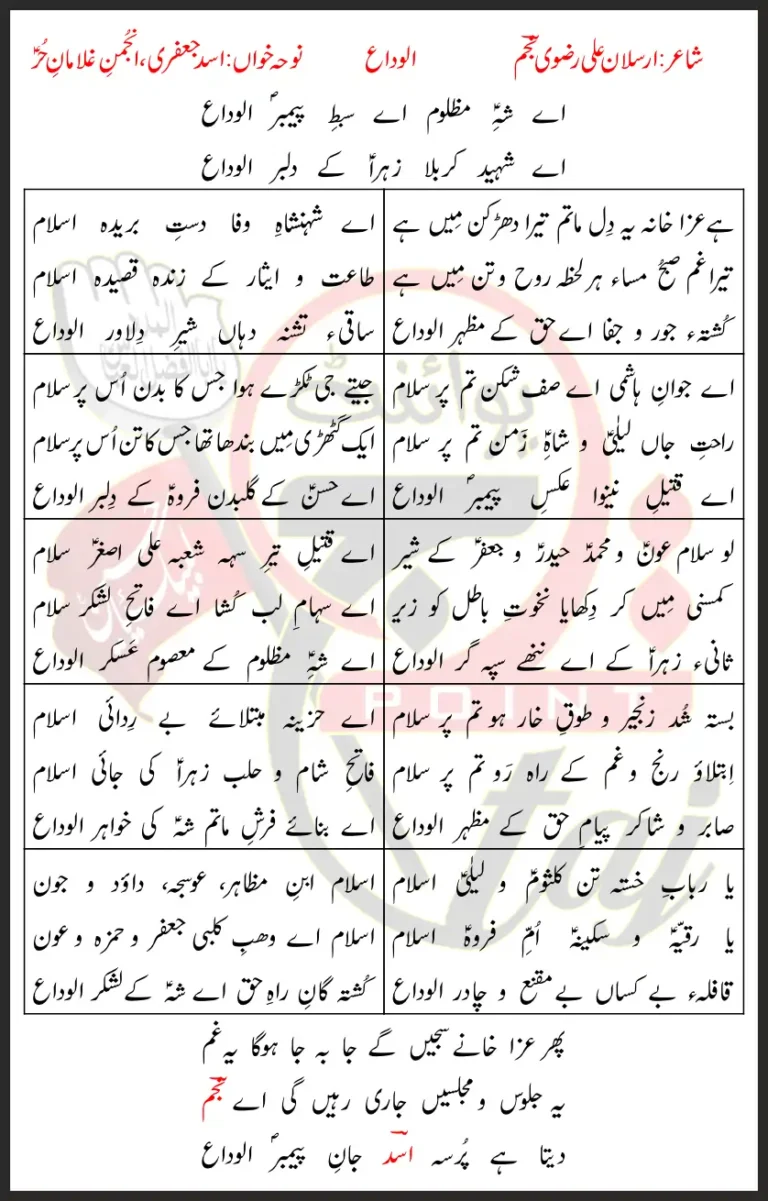 شاعر: ارسلان علی رضوی نجم   الوداع   نوحہ خواں: اسد جعفری، انجمنِ غلامانِ حُرؑ
اے شہِؑ مظلوم اے سبطِ پیمبرؐ الوداع
اے شہیدِ کربلا زہراؑ کے دلبر الوداع
ہے عزا خانہ یہ دِل ماتم تیرا دھڑکن مِیں ہے
تیرا غم صبحُ مساء ہر لحظہ روح و تن مِیں ہے
کُشتہء جور و جفا اے حق کے مظہر الوداع
اے شہنشاہِ وفا دستِ بریدہ اسلام
طاعت و ایثار کے زندہ قصیدہ اسلام
ساقیء تشنہ دہاں شیرِ دِلاور الوداع
اے جوانِ ہاشمی اے صف شکن تم پر سلام
راحتِ جاں لیلیٰؑ و شاہِؑ زَمن تم پر سلام
اے قتیلِ نینوا عکسِ پیمبرؐ الوداع
جیتے جی ٹکڑے ہوا جس کا بدن اُس پر سلام
ایک گٹھڑی مِیں بندھا تھا جس کا تن اُس پر سلام
اے حسنؑ کے گلبدن فروہؑ کے دِلبر الوداع
لو سلام عونؑ و محمدؑ حیدرؑ و جعفرؑ کے شیر
کمسنی مِیں کر دِکھایا نخوتِ باطل کو زیر
ثانیء زہراؑ کے اے ننھے سپہ گر الوداع
اے قتیلِ تیرِ سہہ شعبہ علی اصغرؑ سلام
اے سہامِ لب کُشا اے فاتحِ لشکر سلام
اے شہِؑ مظلوم کے معصوم عَسکر الوداع
بستہ شُد زنجیر و طوقِ خار ہو تم پر سلام
اِبتلاؤ رنج و غم کے راہ رَو تم پر سلام
صابر و شاکر پیامِ حق کے مظہر الوداع
اے حزینہ مبتلائے بے رِدائی اسلام
فاتحِ شام و حلب زہراؑ کی جائی اسلام
اے بنائے فرشِ ماتم شہؑ کی خواہر الوداع
یا ربابِ خستہ تن کلثومؑ و لیلیٰؑ اسلام
یا رقیہؑ و سکینہؑ اُمِّ فروہؑ اسلام
قافلہء بے کساں بے مقنع و چادر الوداع
اسلام ابنِ مظاہر، عوسجہ، داؤد و جون
اسلام اے وھبِ کلبی جعفر و حمزہ و عون
کُشتہ گانِ راہِ حق اے شہؑ کے لشکر الوداع
پھر عزا خانے سجیں گے جا بہ جا ہوگا یہ غم
یہ جلوس و مجلسیں جاری رہیں گی اے نجم
دیتا ہے پُرسہ اسد جانِ پیمبرؐ الوداع
پوائنٹ
POINT
taj